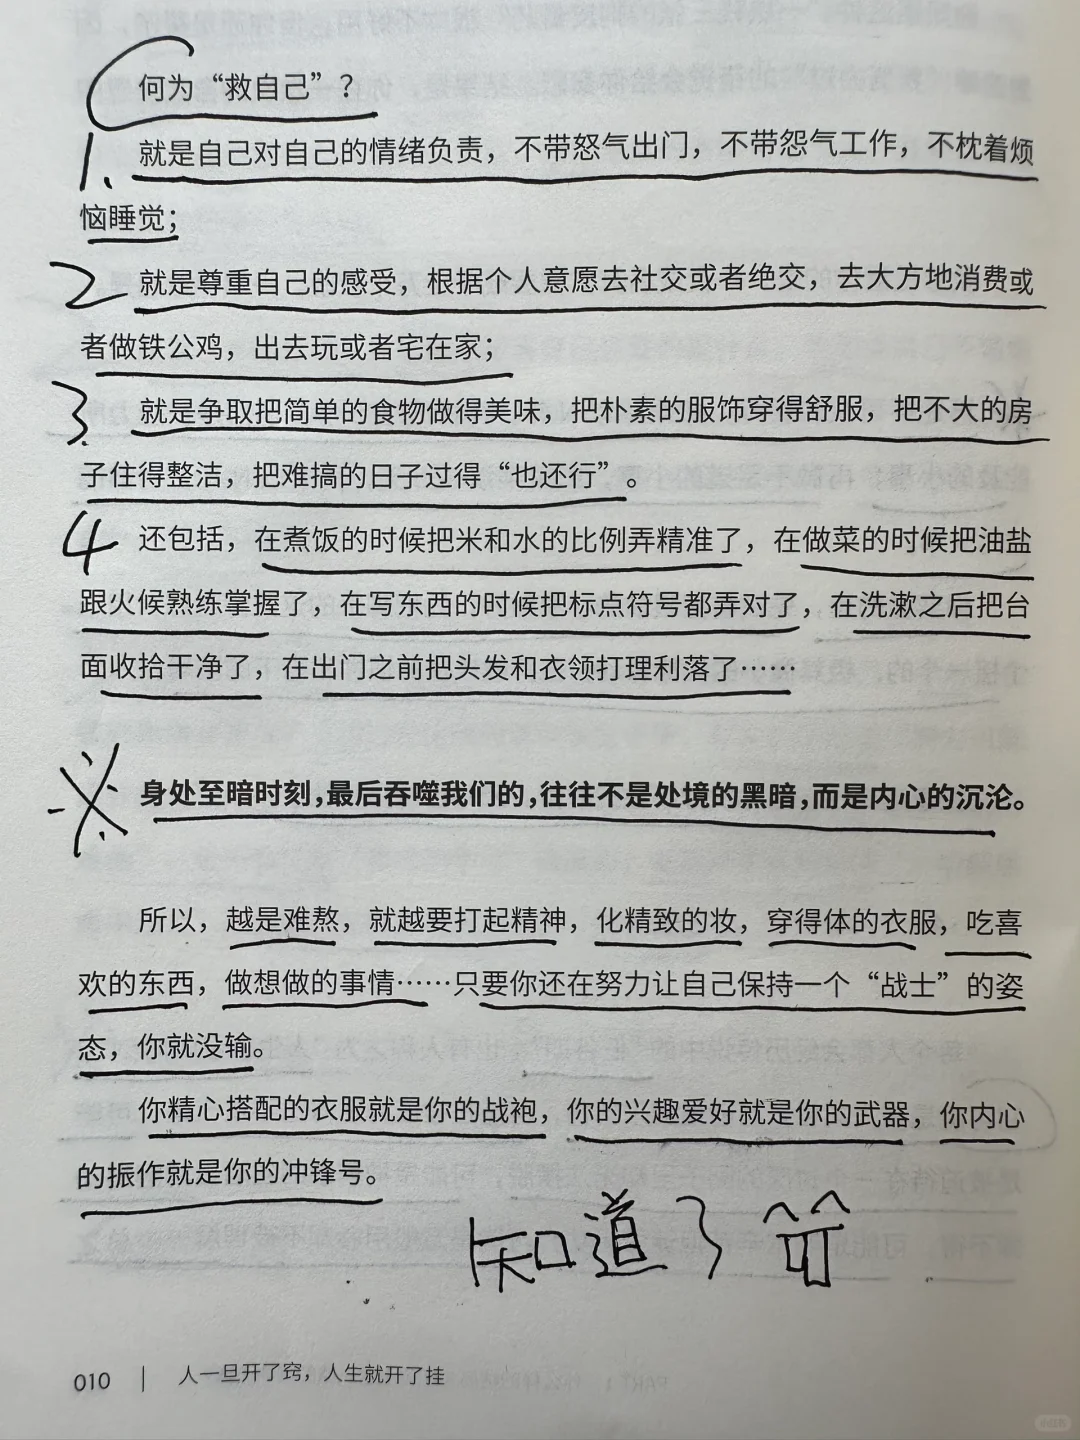 何为“救自己”？
1、就是自己对自己的情绪负责，不带怒气出门，不带怨气工作，不枕着烦
恼睡觉；
2 就是尊重自己的感受，根据个人意愿去社交或者绝交，去大方地消费或
者做铁公鸡，出去玩或者宅在家；
3. 就是争取把简单的食物做得美味，把朴素的服饰穿得舒服，把不大的房
子住得整洁，把难搞的日子过得“也还行”。
4 还包括，在煮饭的时候把米和水的比例弄精准了，在做菜的时候把油盐
跟火候熟练掌握了，在写东西的时候把标点符号都弄对了，在洗漱之后把台
面收拾干净了，在出门之前把头发和衣领打理利落了……
身处至暗时刻，最后吞噬我们的，往往不是处境的黑暗，而是内心的沉沦。
所以，越是难熬，就越要打起精神，化精致的妆，穿得体的衣服，吃喜
欢的东西，做想做的事情……只要你还在努力让自己保持一个“战士”的姿
态，你就没输。
你精心搭配的衣服就是你的战袍，你的兴趣爱好就是你的武器，你内心
的振作就是你的冲锋号。
知道了
010 | 人一旦开了窍，人生就开了挂
小红书